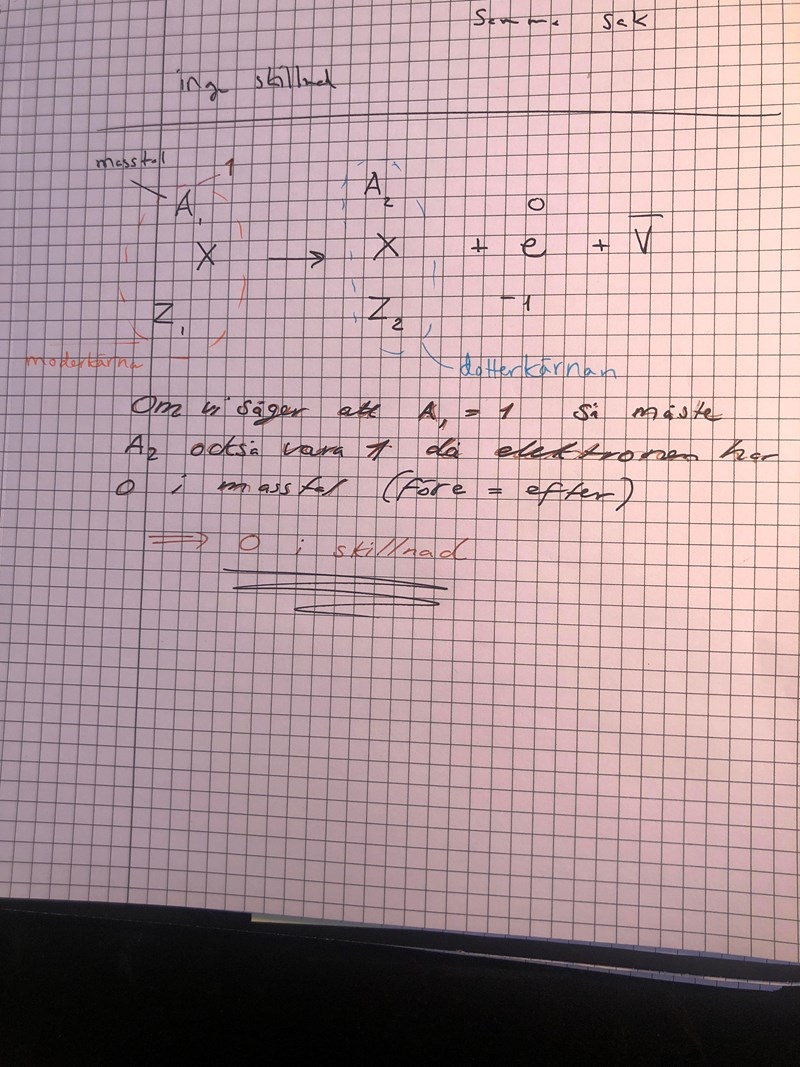 Samma sak
ing skillnad
masstal
1
A₁ A₂ 0
X → X + e + V̅
Z₁ Z₂ -1
moderkärna
dotterkärnan
Om vi säger att A₁ = 1 så måste
A₂ också vara 1 då elektronen har
0 i masstal (före = efter)
⟹ 0 i skillnad